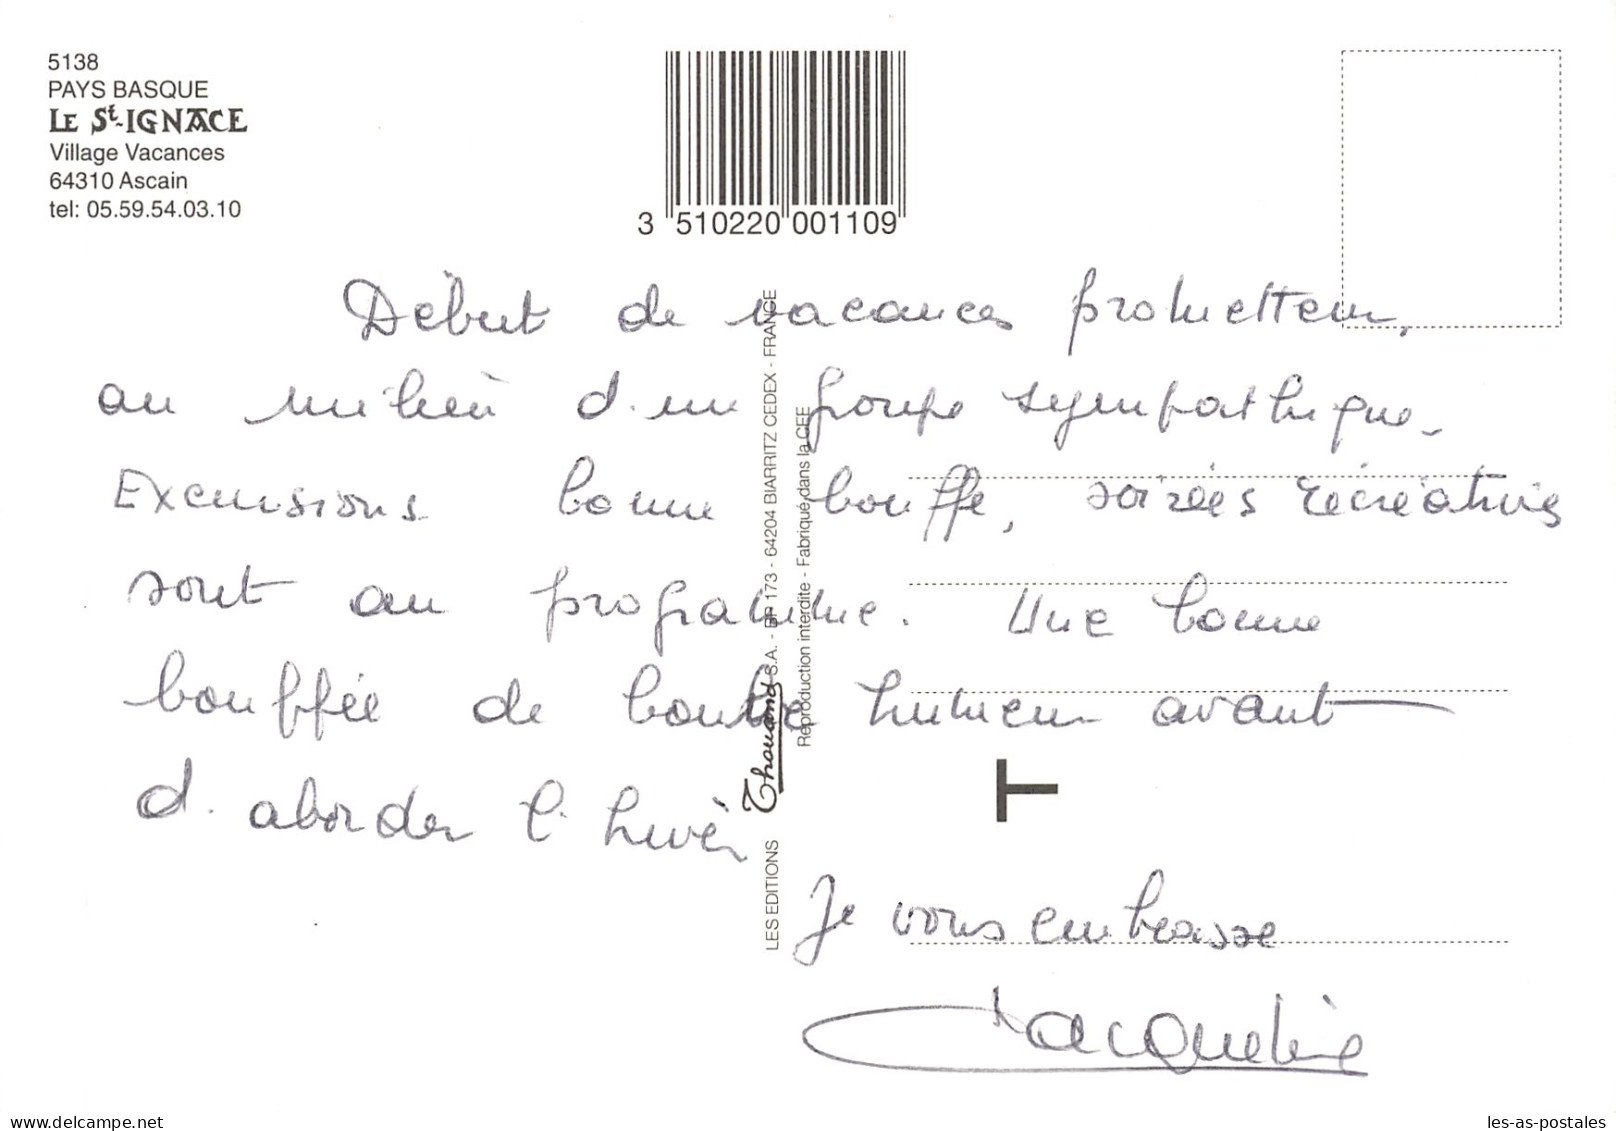 5138
PAYS BASQUE
LE St-IGNACE
Village Vacances
64310 Ascain
tel: 05.59.54.03.10
3 510220 001109
Début de vacances prometteur,
au milieu d'un groupe sympathique.
Excursions bonne bouffe, soirées récréatives
sont au programme. Une bonne
bouffée de bonne humeur avant
d'aborder l'hiver
Je vous embrasse
Jacqueline
LES EDITIONS Thouand S.A. - BP 173 - 64204 BIARRITZ CEDEX - FRANCE
Reproduction interdite - Fabriqué dans la CEE
T
www.delcampe.net
les-as-postales